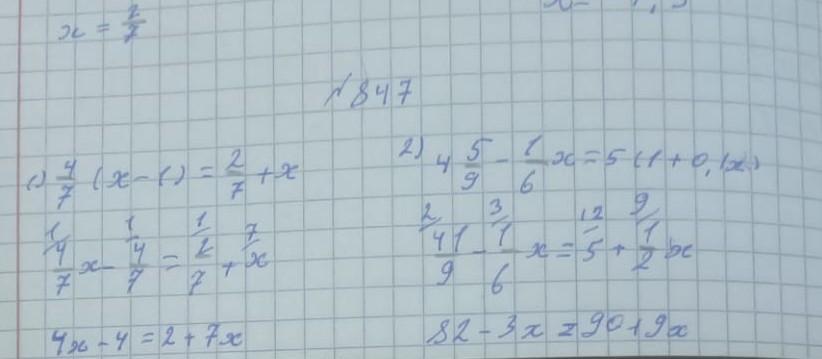 x = 2/7
№847
1) 4/7 (x-1) = 2/7 + x
4/7 x - 4/7 = 2/7 + x
4x - 4 = 2 + 7x
2) 4 5/9 - 1/6 x = 5 (1 + 0,1x)
41/9 - 1/6 x = 5 + 1/2 x
82 - 3x = 90 + 9x